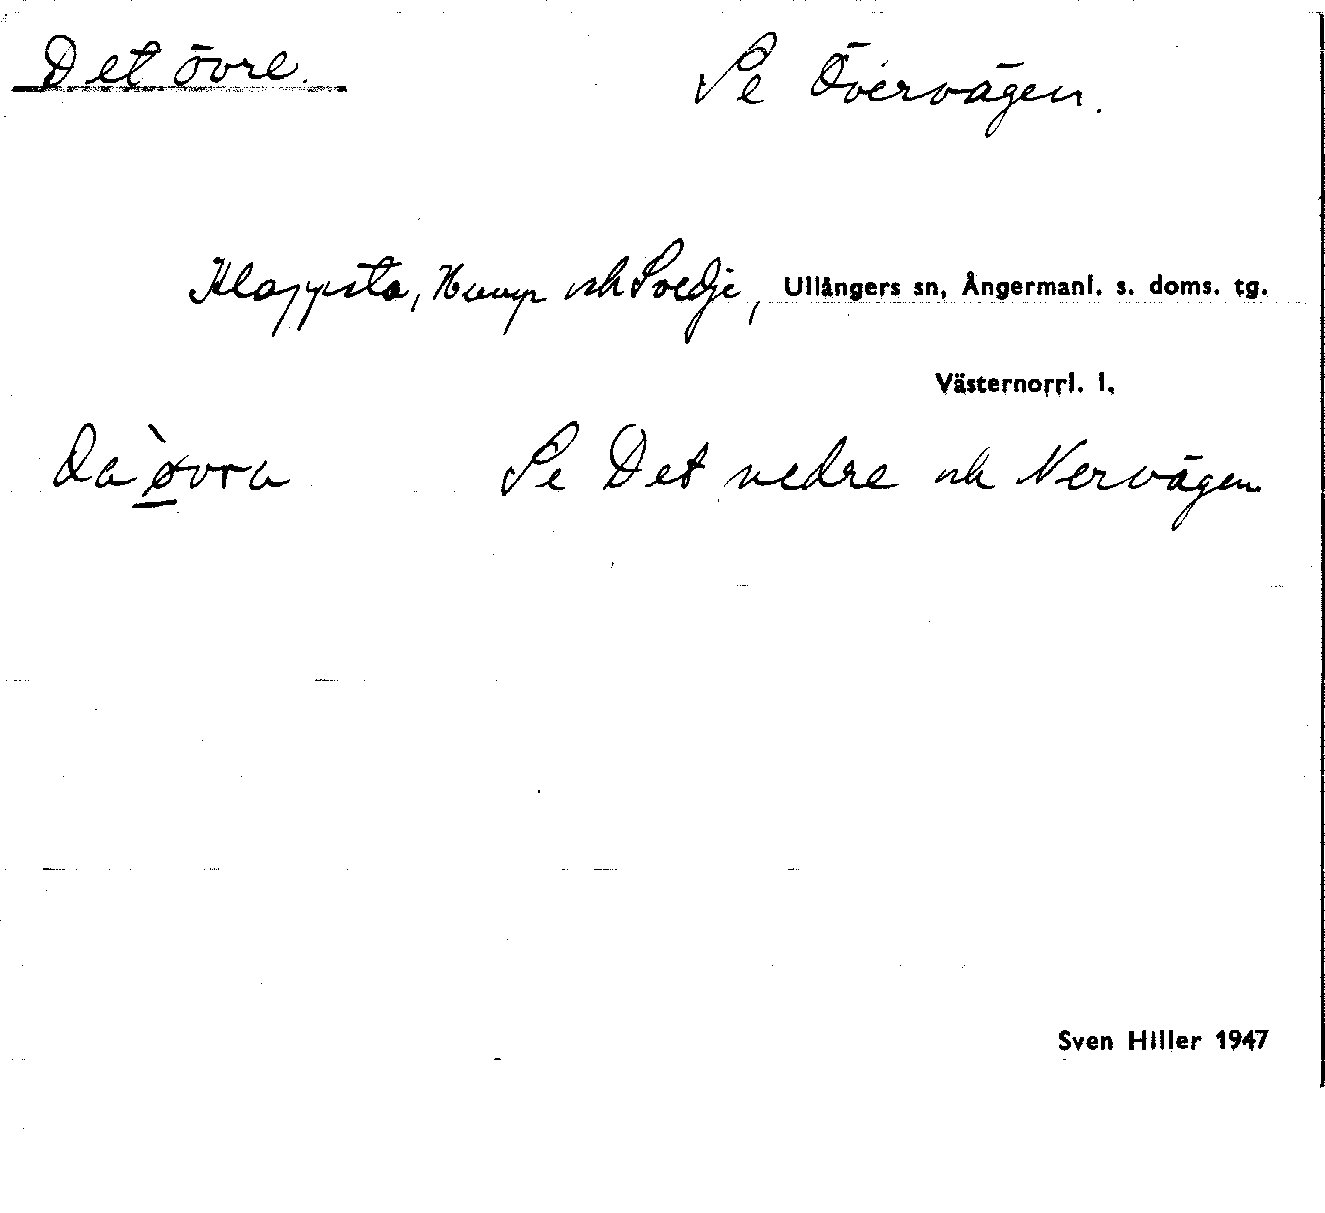 Det övre. Se Övervägen.
Klappsta, Hump och Svedje, Ullångers sn, Ångermanl. s. doms. tg.
Västernorrl. l.
Da`øvra Se Det nedre och Nervägen
Sven Hiller 1947